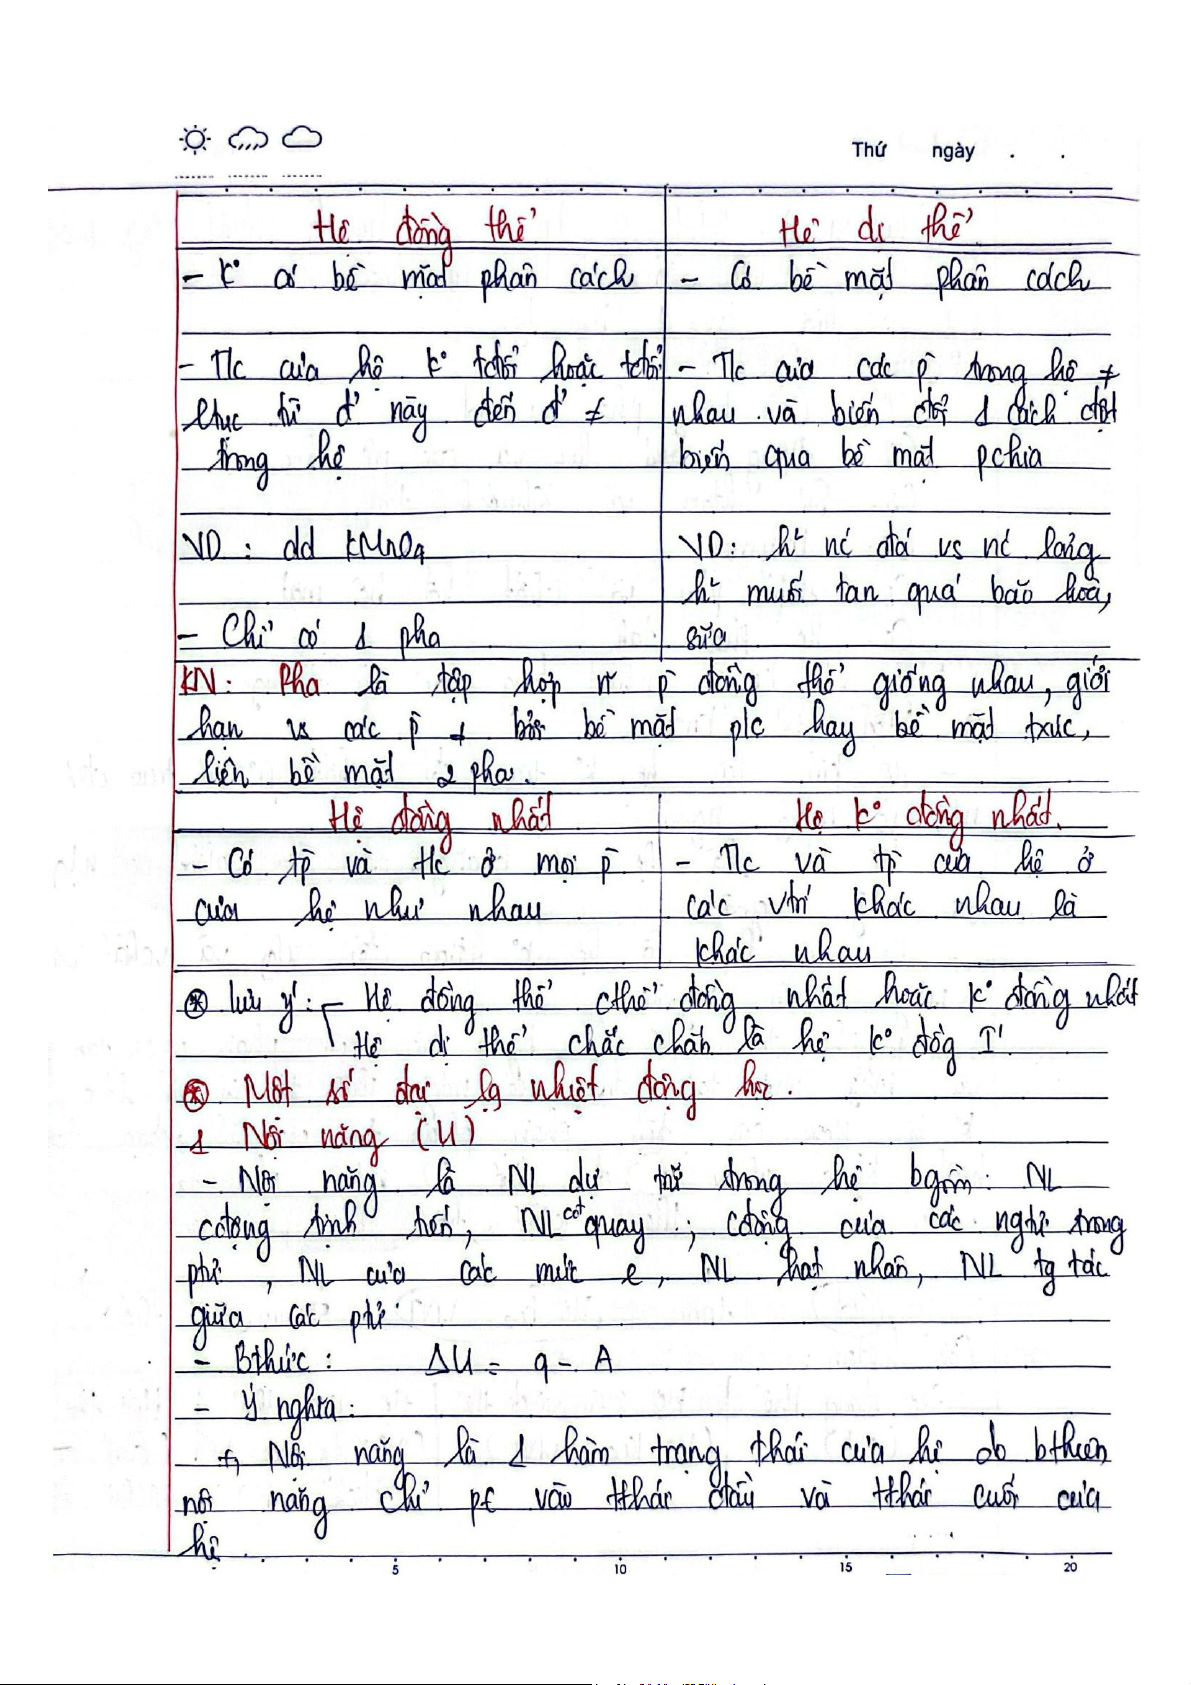 Thứ ngày . .
Hệ đồng thể
Hệ dị thể
- K° có bề mặt phân cách
- Có bề mặt phân cách
- T/c của hệ k° tđổi hoặc tđổi
ltục từ đ' này đến đ' ≠
trong hệ
- T/c của các p̀ trong hệ ≠
nhau và biến đổi 1 cách đột
biến qua bề mặt pchia
VD : dd KMnO4
- Chỉ có 1 pha
VD: h² nc đá vs nc lỏng
h² muối tan quá bão hoà,
sữa
KN: Pha là tập hợp p̀ đồng thể giống nhau, giới
hạn vs các p̀ ≠ bởi bề mặt plc hay bề mặt txúc,
liên bề mặt 2 pha.
Hệ đồng nhất
Hệ k° đồng nhất.
- Có tp̀ và t/c ở mọi p̀
của hệ như nhau
- T/c và tp̀ của hệ ở
các vtrí khác nhau là
khác nhau
⊛ lưu ý: - Hệ đồng thể cthể đồng nhất hoặc k° đồng nhất
Hệ dị thể chắc chắn là hệ k° đồg I'.
⊛ Một số đại lg nhiệt động học.
1 Nội năng (U)
- Nội năng là NL dự trữ trong hệ bgồm: NL
cđộng tịnh tiến, NL cđ quay, cđộng của các ngtử trong
ptử, NL của các mức e, NL hạt nhân, NL tg tác
giữa các ptử
- Bthức : ΔU = q - A
- Ý nghĩa :
+, Nội năng là 1 hàm trạng thái của hệ do bthiên
nội năng chỉ pt vào tthái đầu và tthái cuối của
hệ
5 10 15 20